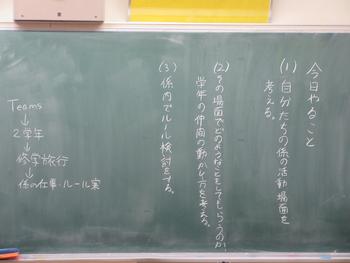 今日やること
(1) 自分たちの係の活動場面を
考える。
(2) その場面でどのようなことをしてもらうのか、
学年の仲間の動かし方を考える。
(3) 係内でルール検討をする。
Teams
↓
2学年
↓
修学旅行
↓
係の仕事・ルール実